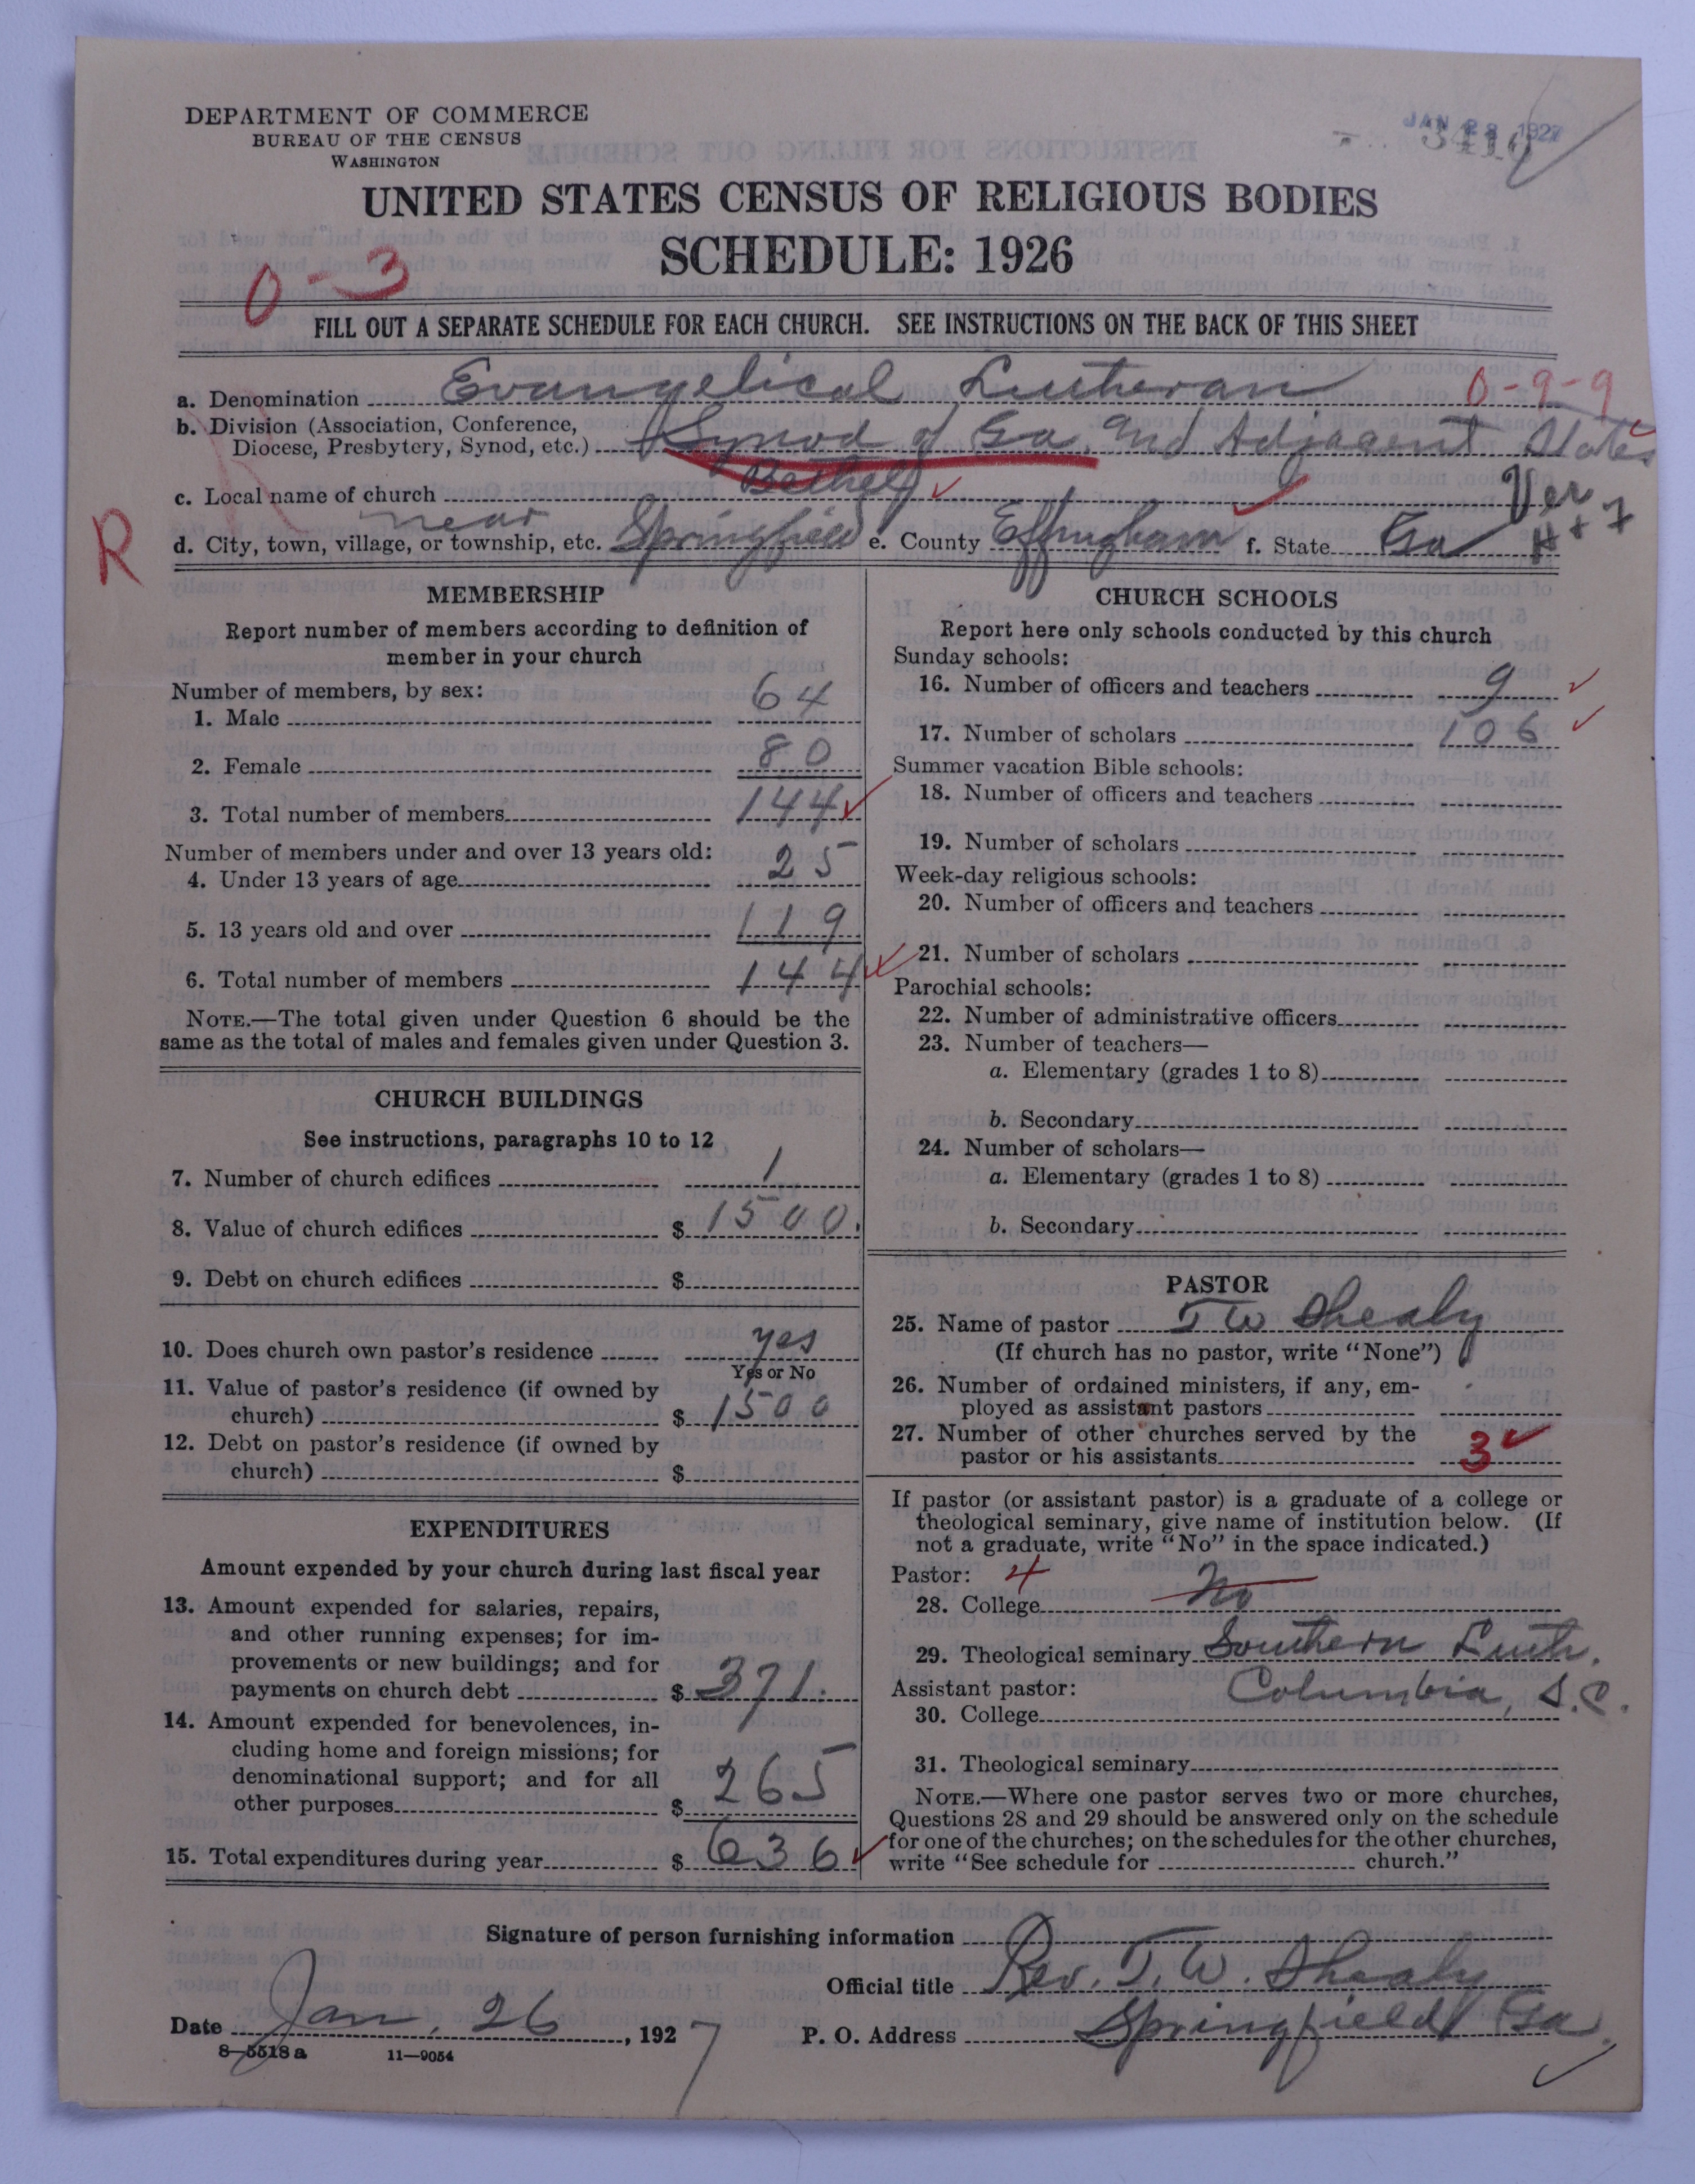 DEPARTMENT OF COMMERCE
BUREAU OF THE CENSUS
WASHINGTON
JAN 28 1927
UNITED STATES CENSUS OF RELIGIOUS BODIES
SCHEDULE: 1926
0-3
FILL OUT A SEPARATE SCHEDULE FOR EACH CHURCH. SEE INSTRUCTIONS ON THE BACK OF THIS SHEET
a. Denomination Evangelical Lutheran 0-9-9
b. Division (Association, Conference,
Diocese, Presbytery, Synod, etc.) Synod of Ga. and Adjacent States
c. Local name of church Bethel Ver
d. City, town, village, or township, etc. near Springfield e. County Effingham f. State Ga H+7
R
MEMBERSHIP
Report number of members according to definition of
member in your church
Number of members, by sex:
1. Male 64
2. Female 80
3. Total number of members 144
Number of members under and over 13 years old:
4. Under 13 years of age 25
5. 13 years old and over 119
6. Total number of members 144
NOTE.—The total given under Question 6 should be the
same as the total of males and females given under Question 3.
CHURCH BUILDINGS
See instructions, paragraphs 10 to 12
7. Number of church edifices 1
8. Value of church edifices $ 1500.
9. Debt on church edifices $
10. Does church own pastor's residence yes
Yes or No
11. Value of pastor's residence (if owned by
church) $ 1500
12. Debt on pastor's residence (if owned by
church) $
EXPENDITURES
Amount expended by your church during last fiscal year
13. Amount expended for salaries, repairs,
and other running expenses; for im-
provements or new buildings; and for
payments on church debt $ 371.
14. Amount expended for benevolences, in-
cluding home and foreign missions; for
denominational support; and for all
other purposes $ 265
15. Total expenditures during year $ 636
CHURCH SCHOOLS
Report here only schools conducted by this church
Sunday schools:
16. Number of officers and teachers 9
17. Number of scholars 106
Summer vacation Bible schools:
18. Number of officers and teachers
19. Number of scholars
Week-day religious schools:
20. Number of officers and teachers
21. Number of scholars
Parochial schools:
22. Number of administrative officers
23. Number of teachers—
a. Elementary (grades 1 to 8)
b. Secondary
24. Number of scholars—
a. Elementary (grades 1 to 8)
b. Secondary
PASTOR
25. Name of pastor T W Shealy
(If church has no pastor, write "None")
26. Number of ordained ministers, if any, em-
ployed as assistant pastors
27. Number of other churches served by the
pastor or his assistants 3
If pastor (or assistant pastor) is a graduate of a college or
theological seminary, give name of institution below. (If
not a graduate, write "No" in the space indicated.)
Pastor: 4
28. College No
29. Theological seminary Southern Luth.
Assistant pastor: Columbia, S.C.
30. College
31. Theological seminary
NOTE.—Where one pastor serves two or more churches,
Questions 28 and 29 should be answered only on the schedule
for one of the churches; on the schedules for the other churches,
write "See schedule for church."
Signature of person furnishing information
Official title Rev. T. W. Shealy
Date Jan. 26, 1927 P. O. Address Springfield Ga.
8-5518a 11-9054